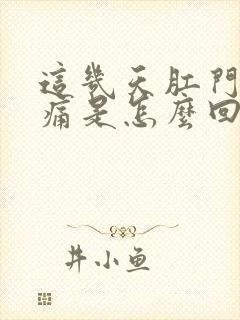 這幾天肛門
痛是怎麼回
井小鱼